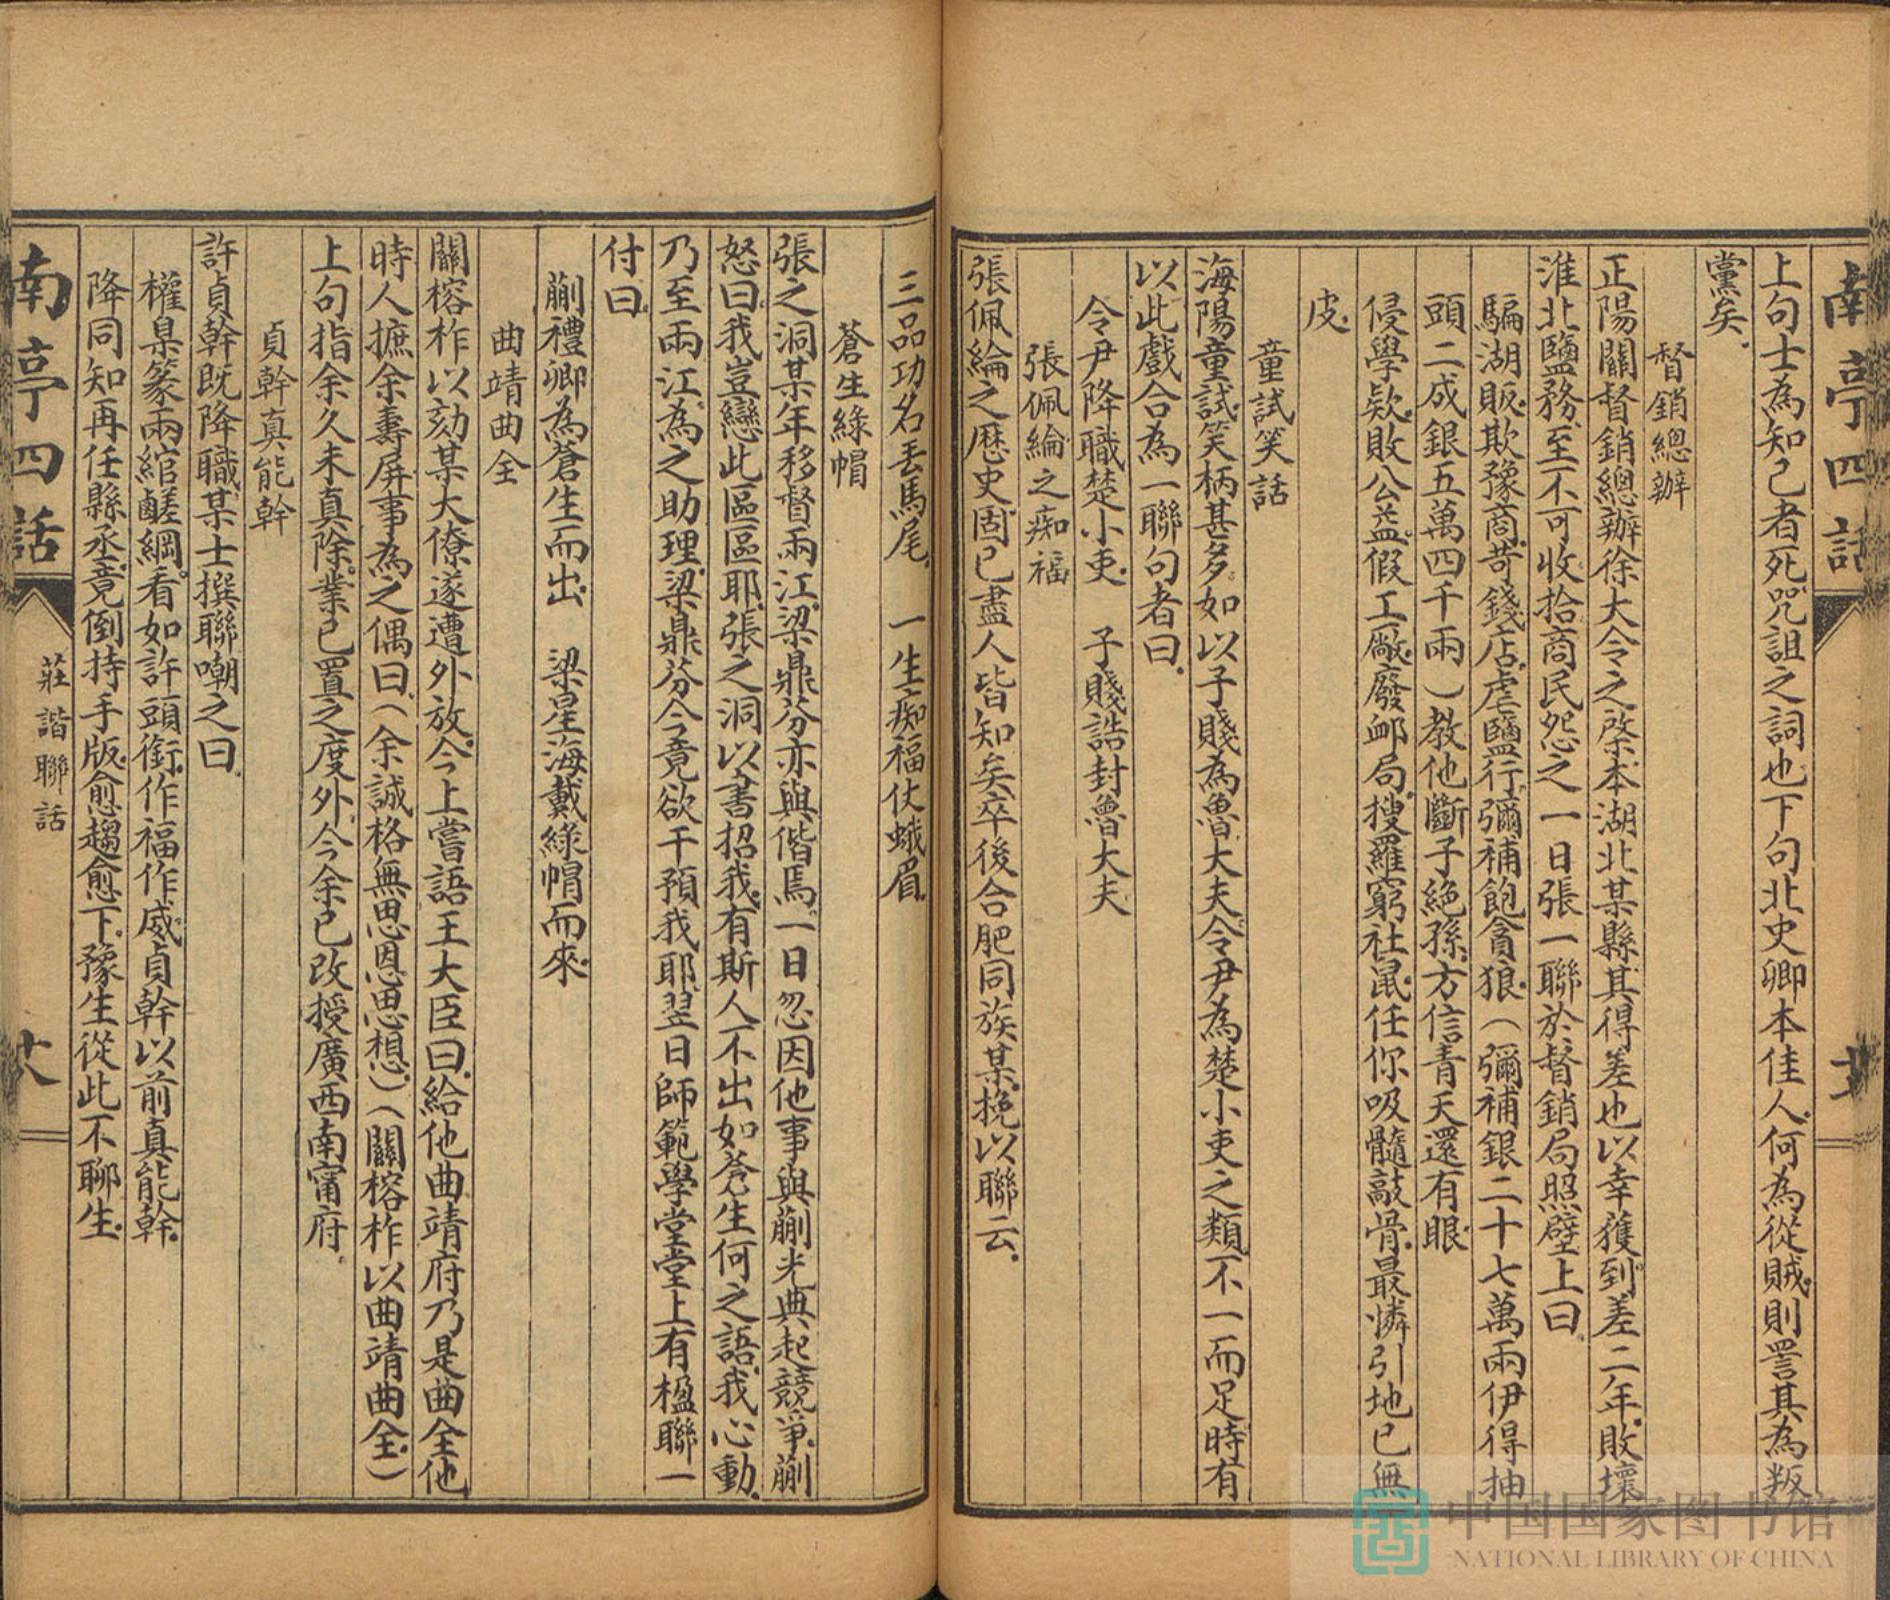 南亭四話
上句士為知己者死咒詛之詞也下句北史卿本佳人何為從賊則詈其為叛
黨矣
督銷總辦
正陽關督銷總辦徐大令之棨本湖北某縣其得差也以幸獲到差二年敗壞
淮北鹽務至不可收拾商民怨之一日張一聯於督銷局照壁上曰
騙湖販欺豫商苛錢店虐鹽行彌補飽貪狼（彌補銀二十七萬兩伊得抽
頭二成銀五萬四千兩）教他斷子絕孫方信青天還有眼
侵學欵敗公益假工廠廢邮局搜羅窮社鼠任你吸髓敲骨最憐引地已無
皮
童試笑話
海陽童試笑柄甚多如以子賤為魯大夫令尹為楚小吏之類不一而足時有
以此戲合為一聯句者曰
令尹降職楚小吏　子賤誥封魯大夫
張佩綸之痴福
張佩綸之歷史固已盡人皆知矣卒後合肥同族某挽以聯云
三品功名丟馬尾　一生痴福仗蛾眉
蒼生綠帽
張之洞某年移督兩江梁鼎芬亦與偕焉一日忽因他事與蒯光典起競爭蒯
怒曰我豈戀此區區耶張之洞以書招我有斯人不出如蒼生何之語我心動
乃至兩江為之助理梁鼎芬今竟欲干預我耶翌日師範學堂堂上有楹聯一
付曰
蒯禮卿為蒼生而出　梁星海戴綠帽而來
曲靖曲全
關榕柞以劾某大僚遂遭外放今上嘗語王大臣曰給他曲靖府乃是曲全他
時人摭余壽屏事為之偶曰（余誠格無思恩思想）（關榕柞以曲靖曲全）
上句指余久未真除業已置之度外今余已改授廣西南甯府
貞幹真能幹
許貞幹既降職某士撰聯嘲之曰
權臬篆兩綰鹺綱看如許頭銜作福作威貞幹以前真能幹
降同知再任縣丞竟倒持手版愈趨愈下豫生從此不聊生
南亭四話
莊諧聯話